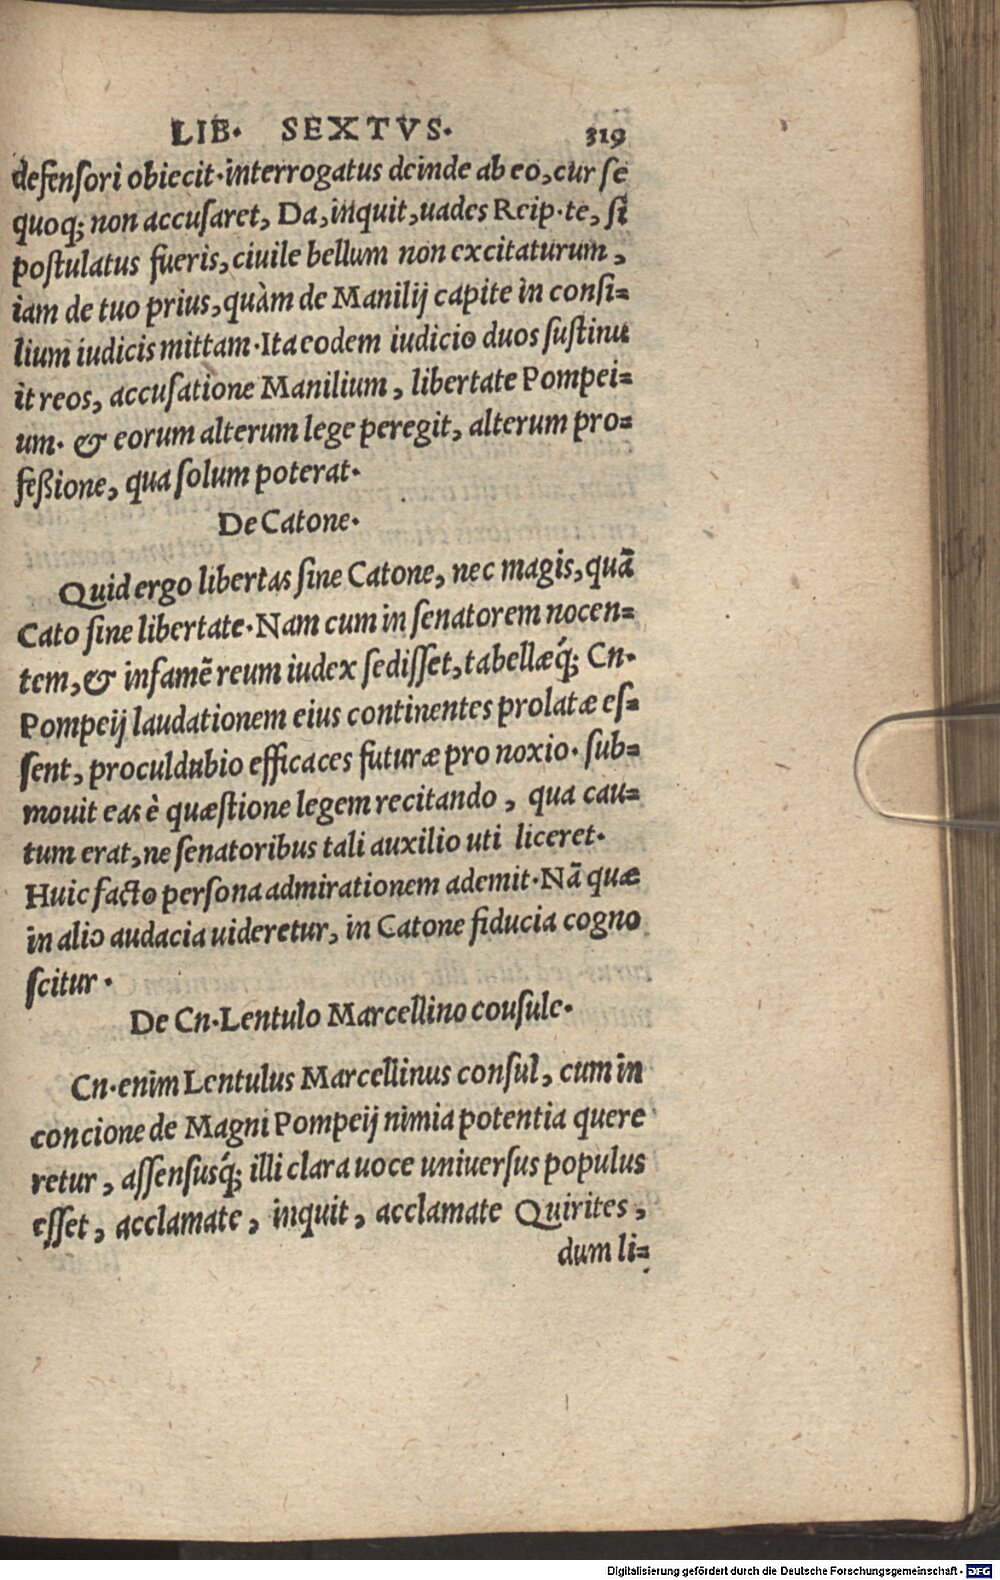 LIB. SEXTVS. 319
defensori obiecit.interrogatus deinde ab eo,cur se
quoq; non accusaret, Da,inquit,uades Reip.te, si
postulatus fueris,ciuile bellum non excitaturum,
iam de tuo prius,quàm de Manilij capite in consi=
lium iudicis mittam.Ita eodem iudicio duos sustinu
it reos, accusatione Manilium, libertate Pompei=
um. & eorum alterum lege peregit, alterum pro=
feßione, qua solum poterat.
De Catone.
Quid ergo libertas sine Catone, nec magis,quã
Cato sine libertate.Nam cum in senatorem nocen=
tem,& infamẽ reum iudex sedisset,tabellæq́; Cn.
Pompeij laudationem eius continentes prolatæ es=
sent, proculdubio efficaces futuræ pro noxio. sub=
mouit eas è quæstione legem recitando, qua cau=
tum erat,ne senatoribus tali auxilio uti liceret.
Huic facto persona admirationem ademit.Nã quæ
in alio audacia uideretur, in Catone fiducia cogno
scitur.
De Cn.Lentulo Marcellino cousule.
Cn.enim Lentulus Marcellinus consul, cum in
concione de Magni Pompeij nimia potentia quere
retur, assensusq́; illi clara uoce uniuersus populus
esset, acclamate, inquit, acclamate Quirites,
dum li=
Digitalisierung gefördert durch die Deutsche Forschungsgemeinschaft - DFG